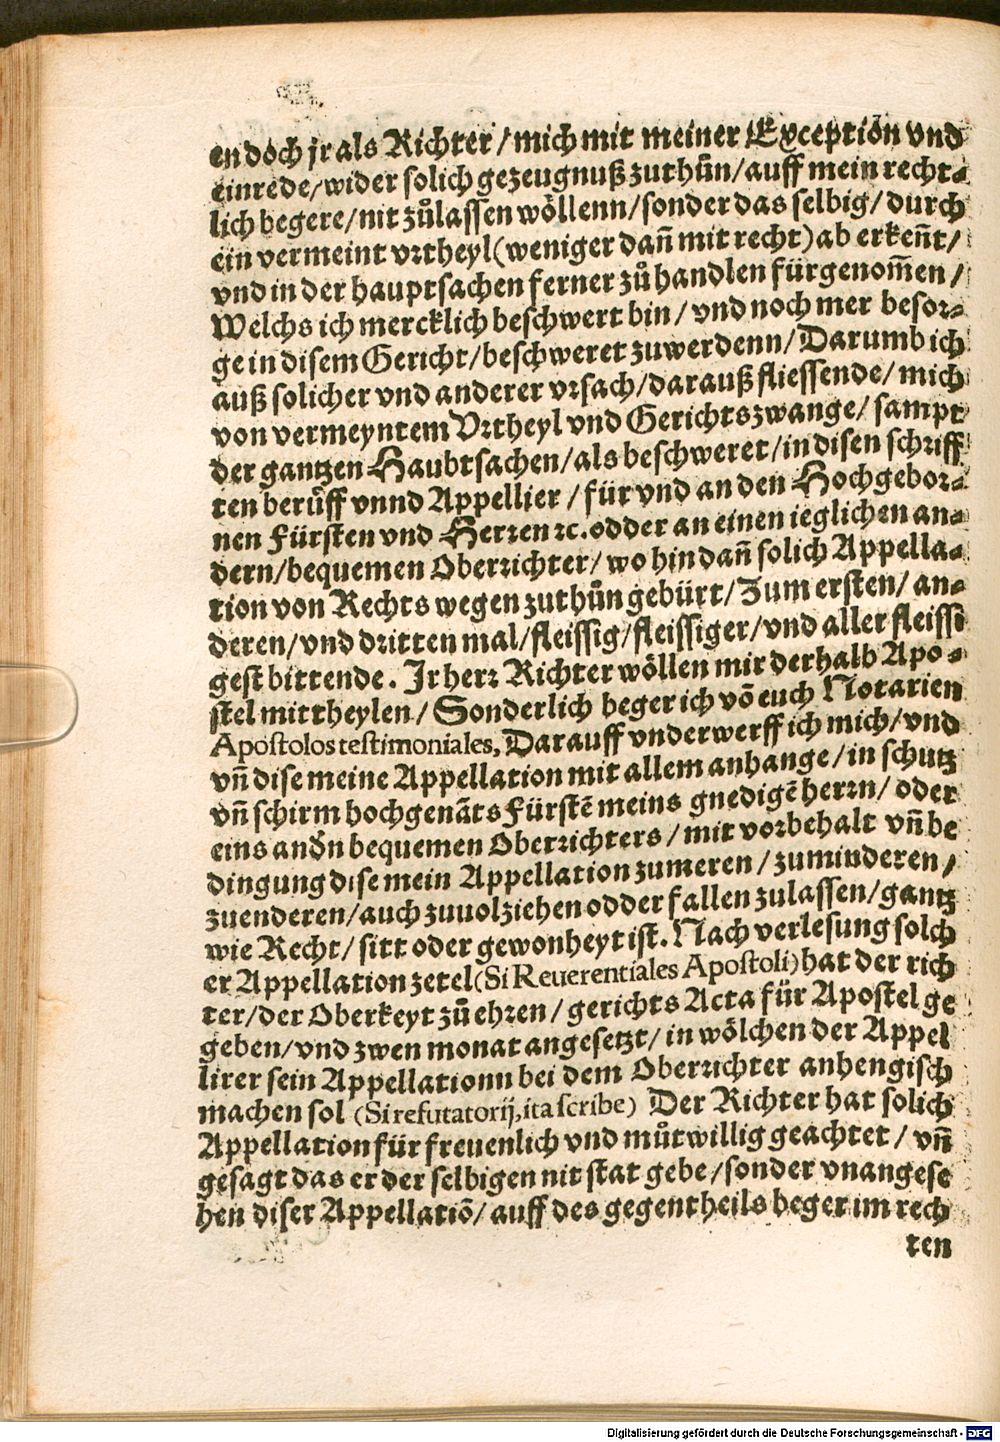 en doch jr als Richter / mich mit meiner Exception vnd
einrede / wider solich gezeugnuß zuthůn / auff mein recht⸗
lich begere / nit zůlassen wöllenn / sonder das selbig / durch
ein vermeint vrtheyl (weniger dañ mit recht) ab erkeñt /
vnd in der hauptsachen ferner zů handlen fürgenom̄en /
Welchs ich mercklich beschwert bin / vnd noch mer besor⸗
ge in disem Gericht / beschweret zuwerdenn / Darumb ich
auß solicher vnd anderer vrsach / darauß fliessende / mich
von vermeyntem Vrtheyl vnd Gerichtszwange / sampt
der gantzen Haubtsachen / als beschweret / in disen schriff
ten berůff vnnd Appellier / für vnd an den Hochgebor⸗
nen Fürsten vnd Herren ꝛc. odder an einen ieglichen an⸗
dern / bequemen Oberrichter / wo hin dañ solich Appella⸗
tion von Rechts wegen zuthůn gebürt / Zum ersten / an⸗
deren / vnd dritten mal / fleissig / fleissiger / vnd aller fleissi
gest bittende. Jr herr Richter wöllen mir derhalb Apo⸗
stel mittheylen / Sonderlich beger ich võ euch Notarien
Apostolos testimoniales, Darauff vnderwerff ich mich / vnd
vñ dise meine Appellation mit allem anhange / in schutz
vñ schirm hochgenãts Fürstẽ meins gnedigẽ herrn / oder
eins andn̄ bequemen Oberrichters / mit vorbehalt vñ be
dingung dise mein Appellation zumeren / zuminderen /
zuenderen / auch zuuolziehen odder fallen zulassen / gantz
wie Recht / sitt oder gewonheyt ist. Nach verlesung solch
er Appellation zetel (Si Reuerentiales Apostoli) hat der rich
ter / der Oberkeyt zů ehren / gerichts Acta für Apostel ge
geben / vnd zwen monat angesetzt / in wölchen der Appel
lirer sein Appellationn bei dem Oberrichter anhengisch
machen sol (Si refutatorij, ita scribe) Der Richter hat solich
Appellation für freuenlich vnd můtwillig geachtet / vñ
gesagt das er der selbigen nit stat gebe / sonder vnangese
hen diser Appellatiõ / auff des gegentheils beger im rech
ten
Digitalisierung gefördert durch die Deutsche Forschungsgemeinschaft - DFG